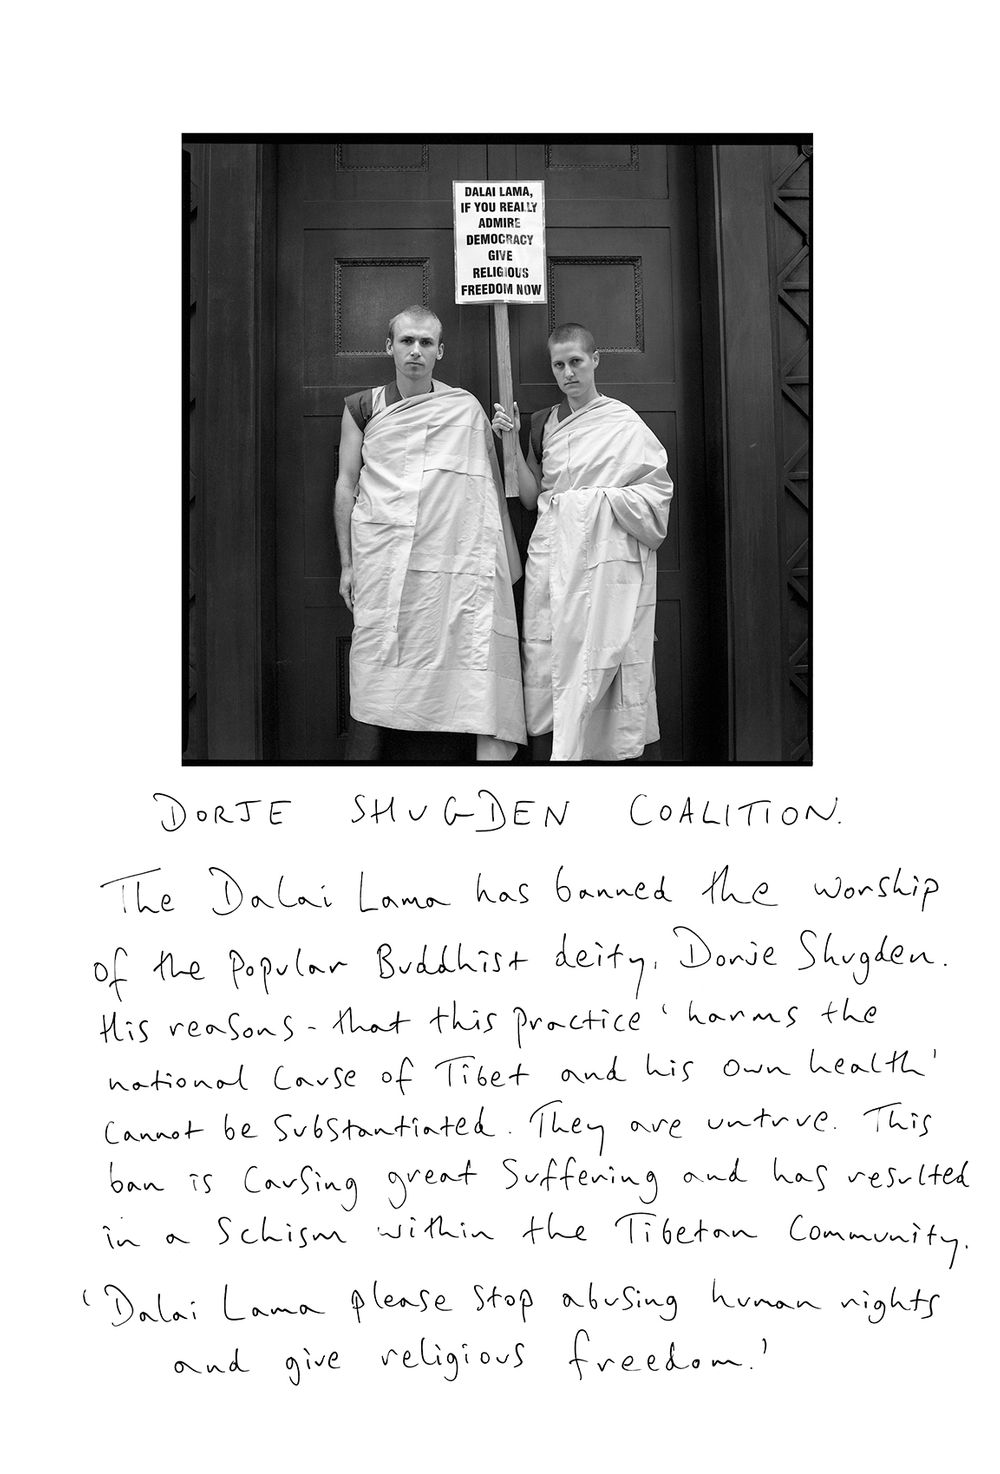 DALAI LAMA,
IF YOU REALLY
ADMIRE
DEMOCRACY
GIVE
RELIGIOUS
FREEDOM NOW
DORJE SHUGDEN COALITION.
The Dalai Lama has banned the worship
of the popular Buddhist deity, Dorje Shugden.
His reasons - that this practice 'harms the
national cause of Tibet and his own health'
cannot be substantiated. They are untrue. This
ban is causing great suffering and has resulted
in a schism within the Tibetan Community.
'Dalai Lama please stop abusing human rights
and give religious freedom.'